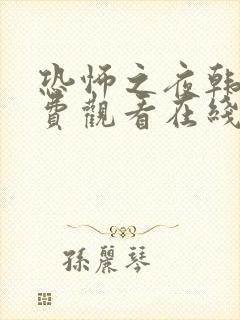 恐怖之夜韓
費觀看在綫
孫麗琴